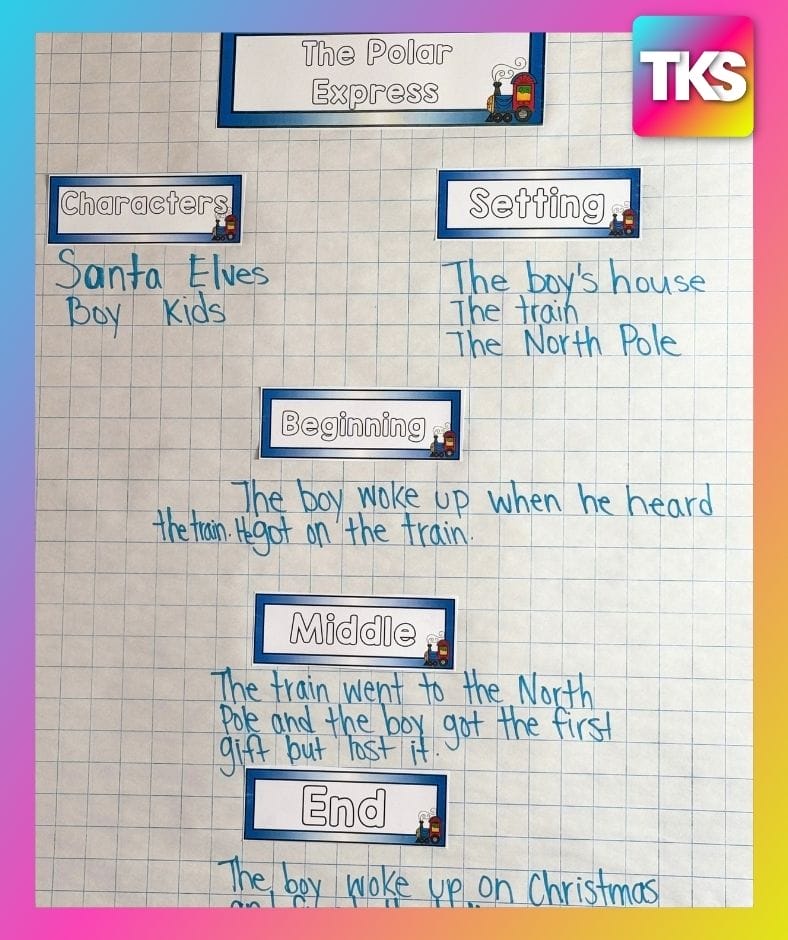 TKS
The Polar
Express
Characters
Setting
Santa Elves
Boy Kids
The boy's house
The train
The North Pole
Beginning
The boy woke up when he heard
the train. He got on the train.
Middle
The train went to the North
Pole and the boy got the first
gift but lost it.
End
The boy woke up on Christmas
and